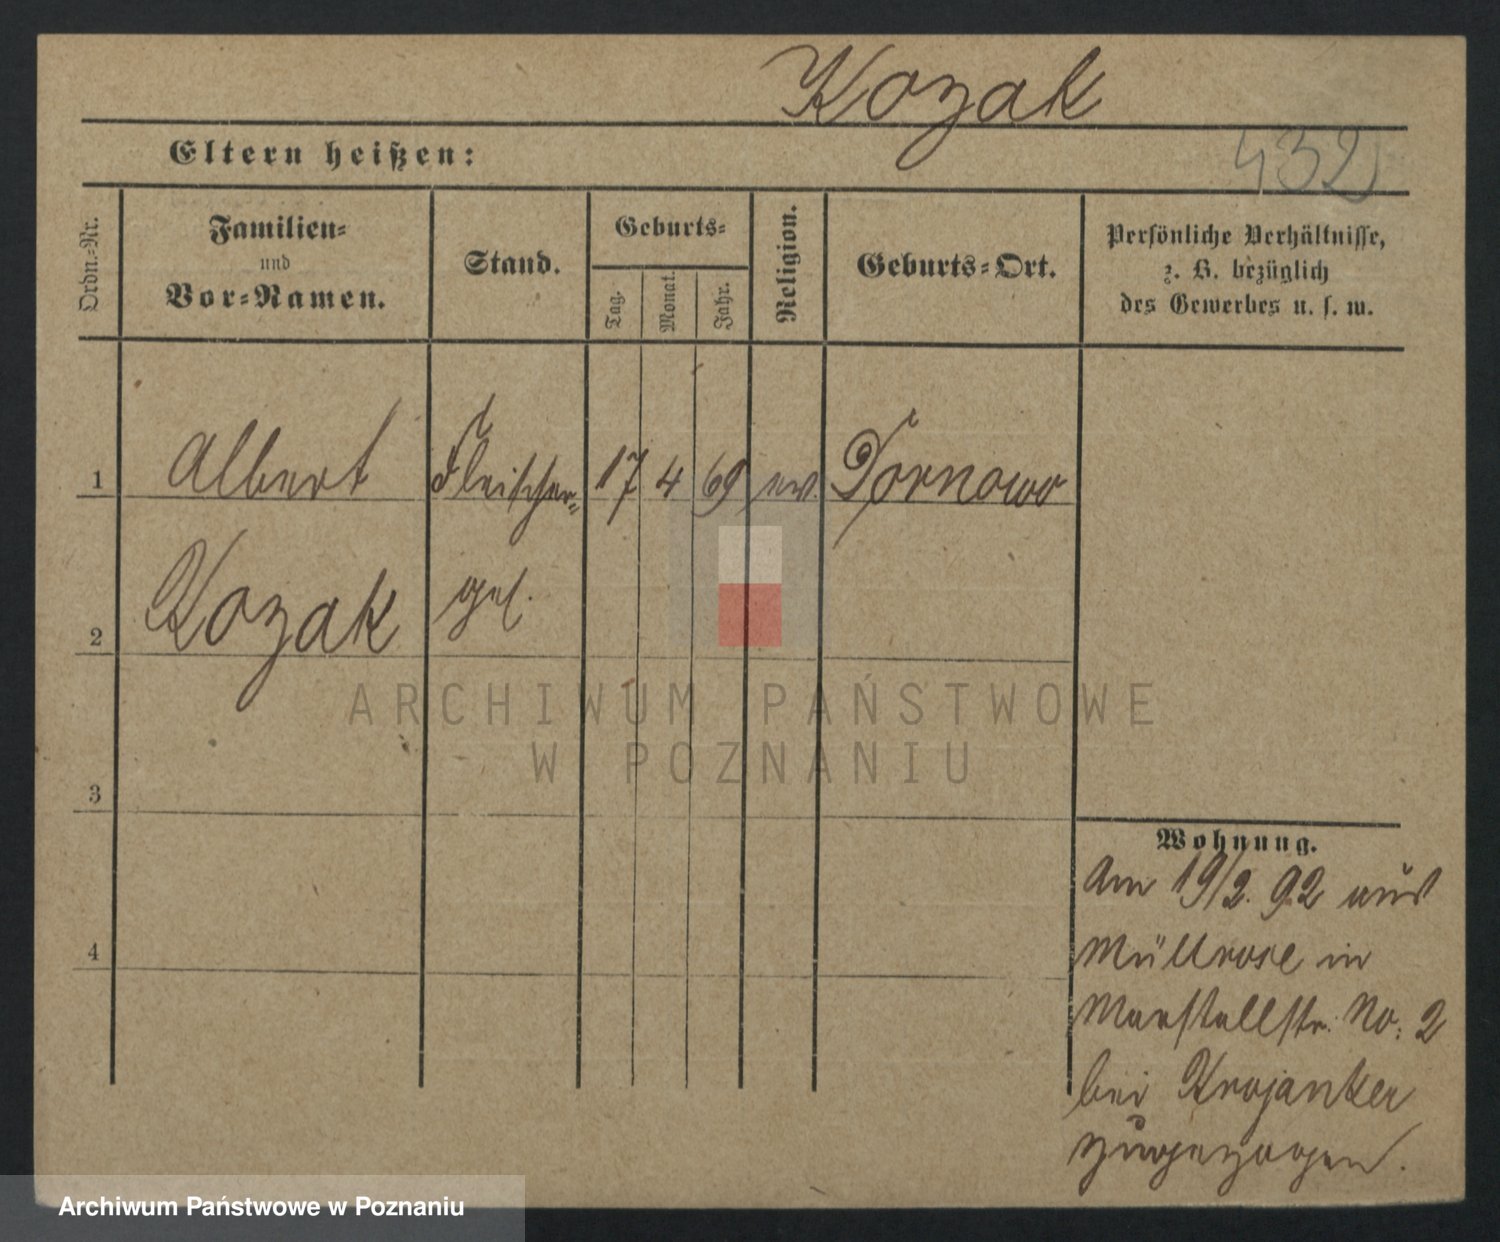 Kozak
Eltern heißen:
432
Ordn.-Nr.
Familien-
und
Vor-Namen.
Stand.
Geburts-
Tag.
Monat.
Jahr.
Religion.
Geburts-Ort.
Persönliche Verhältnisse,
z. B. bezüglich
des Gewerbes u. s. w.
1 Albert Fleischer- 17 4 69 ev. Tornowo
2 Kozak ges.
3
4
ARCHIWUM PAŃSTWOWE
W POZNANIU
Wohnung.
Am 19/2. 92 aus
Müllrose in
Marstallstr. No: 2
bei Krojanker
zugezogen.
Archiwum Państwowe w Poznaniu